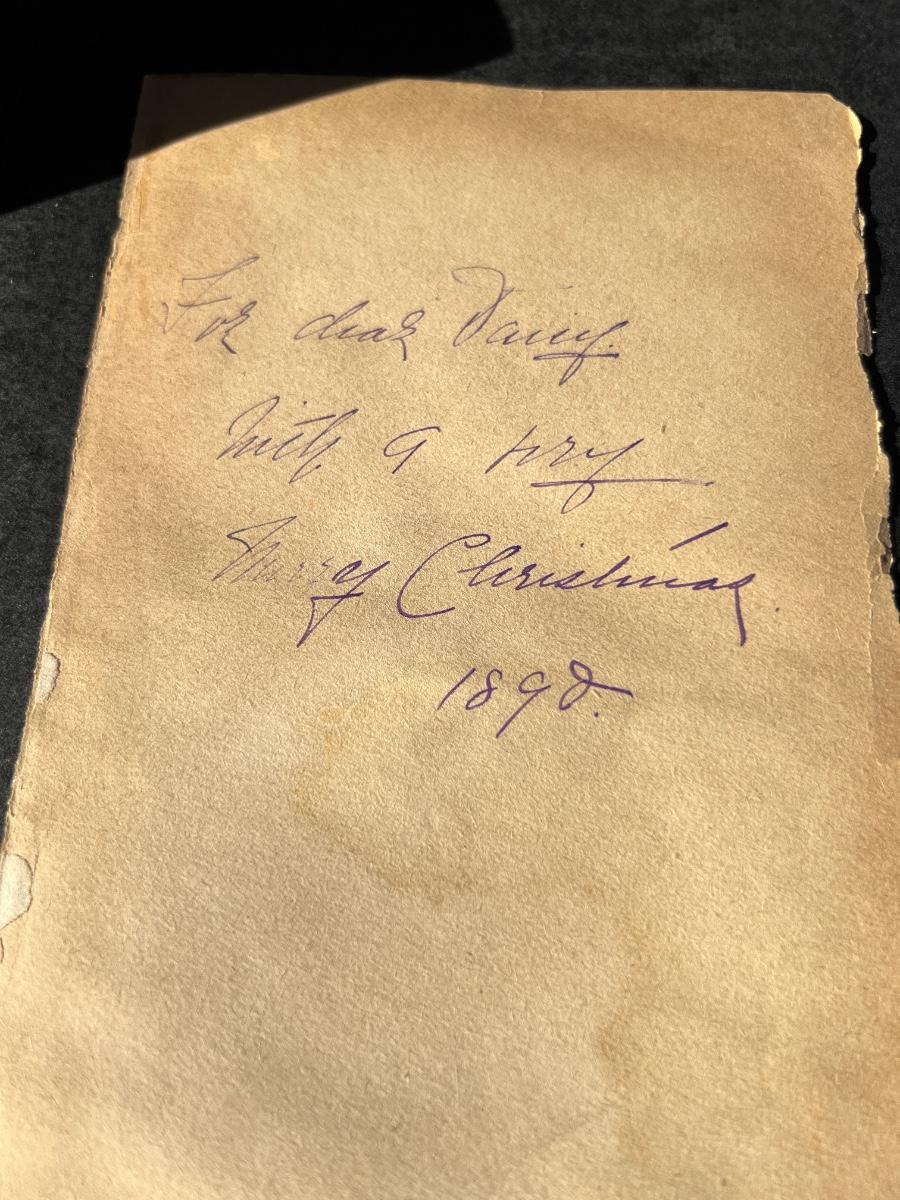 For dear
With a very
Merry Christmas.
1890.